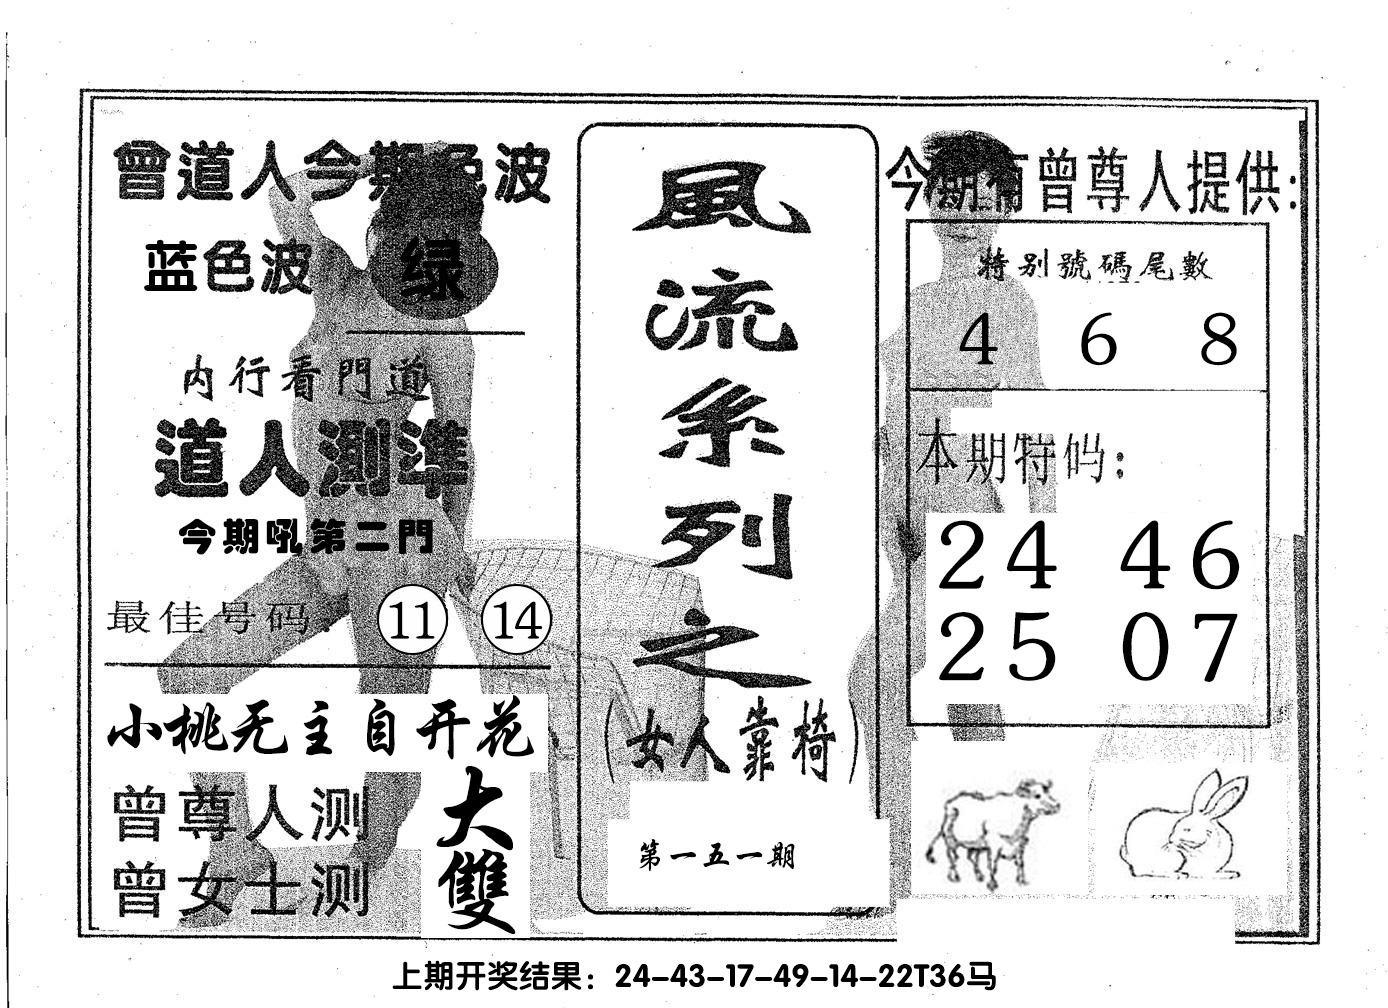 曾道人今期色波
蓝色波 绿
内行看門道
道人測準
今期吼第二門
最佳号码: 11 14
小桃无主自开花
曾尊人测 大
曾女士测 雙
風流系列之
(女人靠椅)
第一五一期
今期有曾尊人提供:
特别號碼尾數
4 6 8
本期特码:
24 46
25 07
上期开奖结果：24-43-17-49-14-22T36马